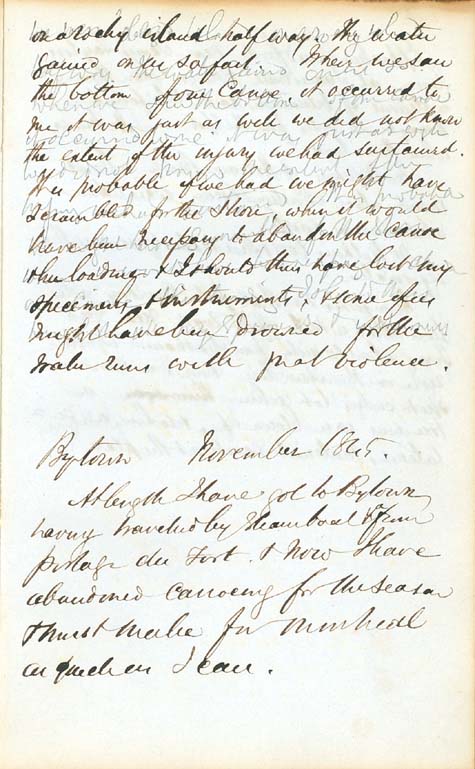 on a rocky island half way. The water
gained on us so fast. When we saw
the bottom of our Canoe it occurred to
me it was just as well we did not know
the extent of the injury we had sustained.
It is probable if we had we might have
scrambled for the shore, when it would
have been necessary to abandon the Canoe
& her loading & I should then have lost my
specimens & instruments, & some of us
might have been drowned for the
water runs with great violence.
Bytown November 1845.
At length I have got to Bytown
having traveled by Steam boat & from
portage du Fort. & now I have
abandoned canoeing for the season
& must make for Montreal
as quick as I can.